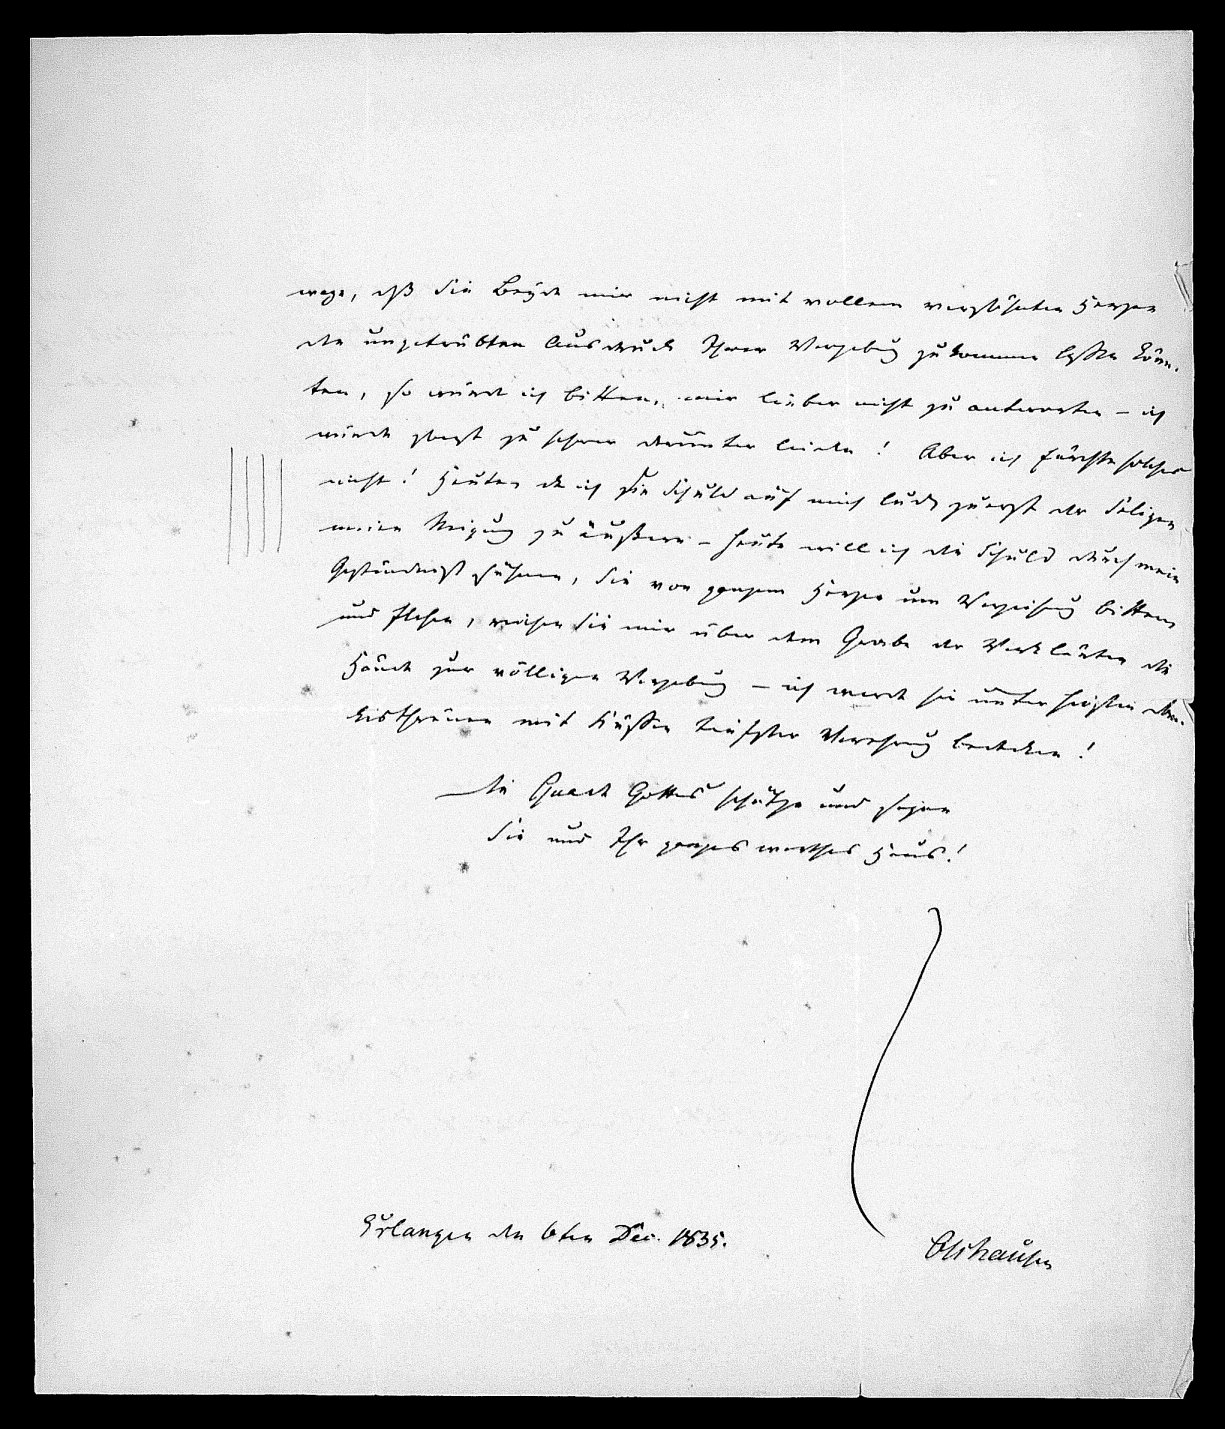 wage, daß Sie Beyde mir nicht mit vollem versöhnten Herzen
den ungetrübten Ausdruck Ihrer Vergebung zukommen laßen könn-
ten, so würde ich bitten, mir lieber nicht zu antworten – ich
würde zu schwer darunter leiden! Aber ich fürchte solches
nicht! Heute, da ich die Schuld auf mich lud, zuerst der Seligen
meine Neigung zu äußern – heute will ich die Schuld durch mein
Geständniß sühnen, Sie von ganzem Herzen um Verzeihung bitten
und flehen, reichen Sie mir über dem Grabe der Verklärten die
Hände zur völligen Vergebung – ich werde sie unter heißen Dan-
kesthränen mit Küßen tiefster Verehrung bedecken!
Die Gnade Gottes schütze und segne
Sie und Ihr ganzes werthes Haus!
Erlangen den 6ten Dec. 1835.
Olshausen